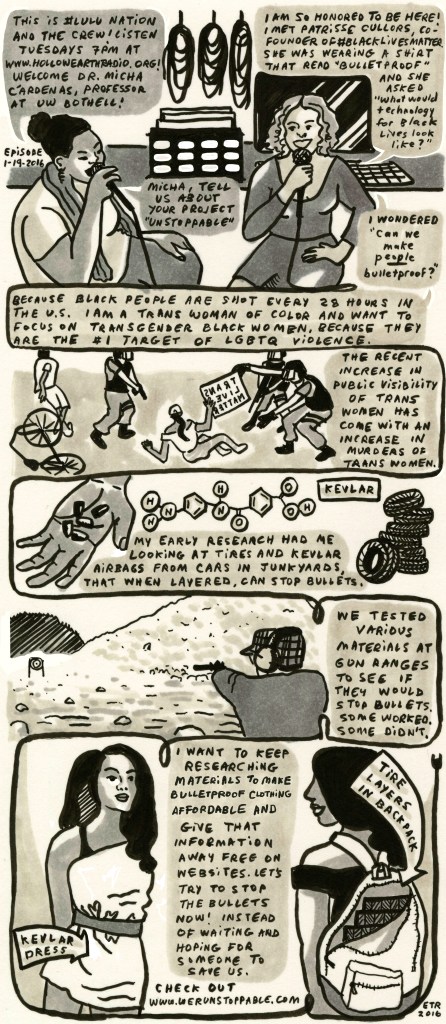 THIS IS #LULU NATION
AND THE CREW! LISTEN
TUESDAYS 7PM AT
WWW.HOLLOWEARTHRADIO.ORG!
WELCOME DR. MICHA
CÁRDENAS, PROFESSOR
AT UW BOTHELL!
I AM SO HONORED TO BE HERE!
I MET PATRISSE CULLORS, CO-
FOUNDER OF #BLACKLIVESMATTER.
SHE WAS WEARING A SHIRT
THAT READ "BULLETPROOF"
AND SHE
ASKED
"What would
technology
for Black
Lives look
like?"
EPISODE
1-19-2016
MICHA, TELL
US ABOUT
YOUR PROJECT
"UNSTOPPABLE"
I WONDERED
"Can we
make
people
bulletproof?"
BECAUSE BLACK PEOPLE ARE SHOT EVERY 28 HOURS IN
THE U.S. I AM A TRANS WOMAN OF COLOR AND WANT TO
FOCUS ON TRANSGENDER BLACK WOMEN, BECAUSE THEY
ARE THE #1 TARGET OF LGBTQ VIOLENCE.
TRANS
LIVES
MATTER
THE RECENT
INCREASE IN
PUBLIC VISIBILITY
OF TRANS
WOMEN HAS
COME WITH AN
INCREASE IN
MURDERS OF
TRANS WOMEN.
KEVLAR
MY EARLY RESEARCH HAD ME
LOOKING AT TIRES AND KEVLAR
AIRBAGS FROM CARS IN JUNKYARDS,
THAT WHEN LAYERED, CAN STOP BULLETS.
WE TESTED
VARIOUS
MATERIALS AT
GUN RANGES
TO SEE IF
THEY WOULD
STOP BULLETS.
SOME WORKED.
SOME DIDN'T.
I WANT TO KEEP
RESEARCHING
MATERIALS TO MAKE
BULLETPROOF CLOTHING
AFFORDABLE AND
GIVE THAT
INFORMATION
AWAY FREE ON
WEBSITES. LET'S
TRY TO STOP
THE BULLETS
NOW! INSTEAD
OF WAITING AND
HOPING FOR
SOMEONE TO
SAVE US.
KEVLAR
DRESS
TIRE
LAYERS
IN BACKPACK
CHECK OUT
WWW.WERUNSTOPPABLE.COM
ETR
2016